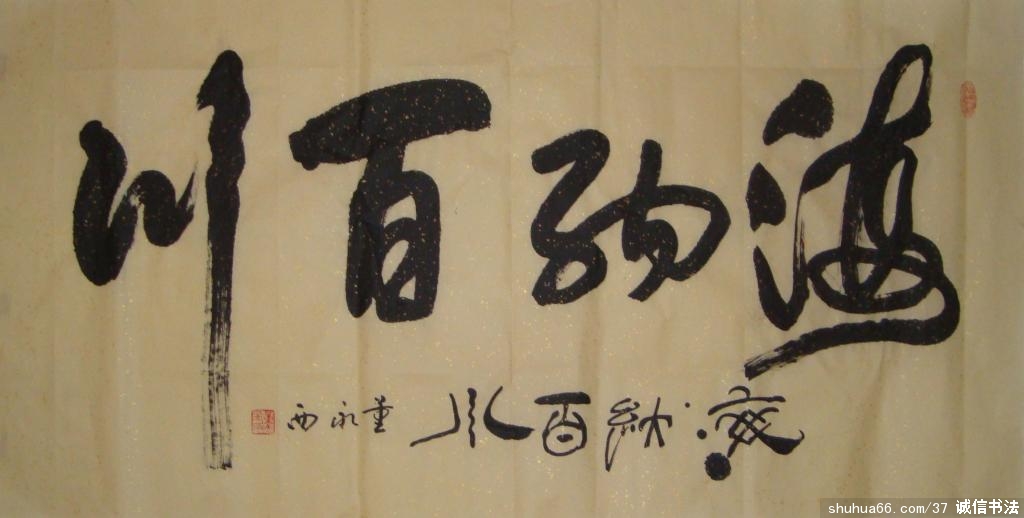 海纳百川
海纳百川 董永西
shuhua66.com/37 诚信书法